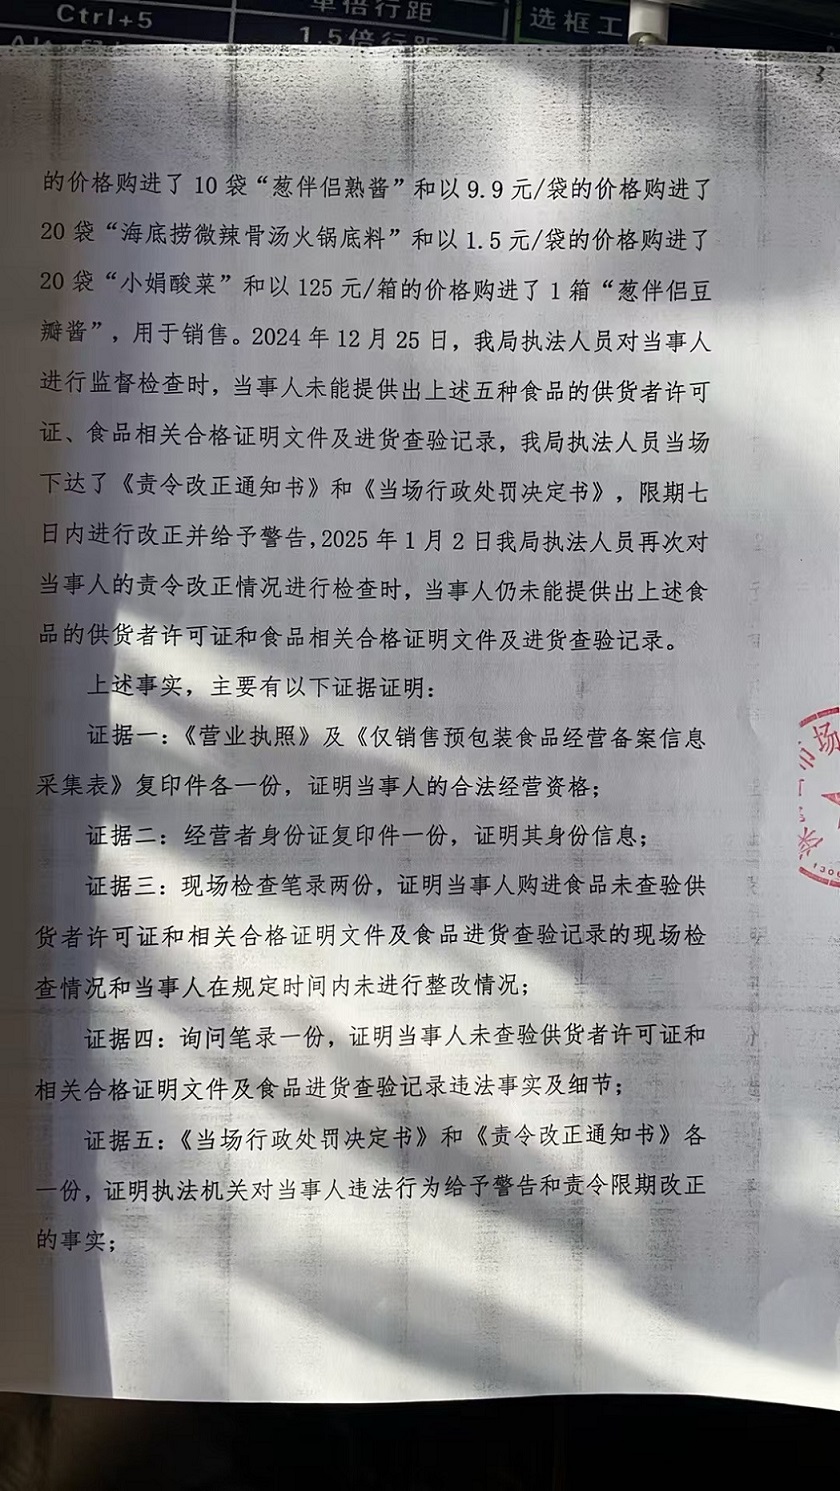 Ctrl+5
单倍行距
选框工
1.5倍行距
3
的价格购进了 10 袋“葱伴侣熟酱”和以 9.9 元/袋的价格购进了
20 袋“海底捞微辣骨汤火锅底料”和以 1.5 元/袋的价格购进了
20 袋“小娟酸菜”和以 125 元/箱的价格购进了 1 箱“葱伴侣豆
瓣酱”，用于销售。2024 年 12 月 25 日，我局执法人员对当事人
进行监督检查时，当事人未能提供出上述五种食品的供货者许可
证、食品相关合格证明文件及进货查验记录，我局执法人员当场
下达了《责令改正通知书》和《当场行政处罚决定书》，限期七
日内进行改正并给予警告,2025 年 1 月 2 日我局执法人员再次对
当事人的责令改正情况进行检查时，当事人仍未能提供出上述食
品的供货者许可证和食品相关合格证明文件及进货查验记录。
上述事实，主要有以下证据证明：
证据一：《营业执照》及《仅销售预包装食品经营备案信息
采集表》复印件各一份，证明当事人的合法经营资格；
证据二：经营者身份证复印件一份，证明其身份信息；
证据三：现场检查笔录两份，证明当事人购进食品未查验供
货者许可证和相关合格证明文件及食品进货查验记录的现场检
查情况和当事人在规定时间内未进行整改情况；
证据四：询问笔录一份，证明当事人未查验供货者许可证和
相关合格证明文件及食品进货查验记录违法事实及细节；
证据五：《当场行政处罚决定书》和《责令改正通知书》各
一份，证明执法机关对当事人违法行为给予警告和责令限期改正
的事实；
市场